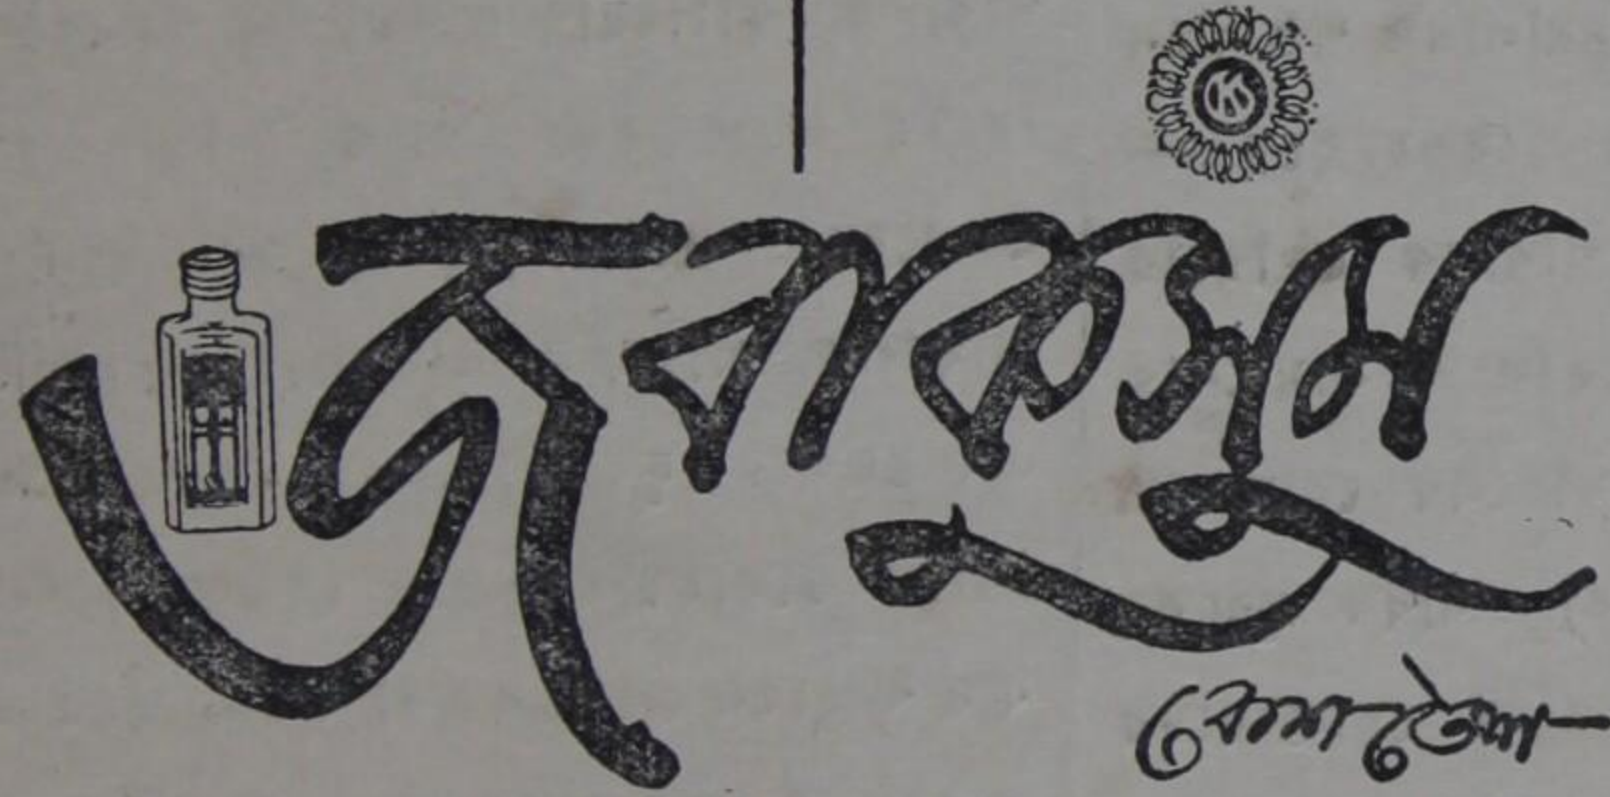 জবাকুসুম
কেশ তৈল